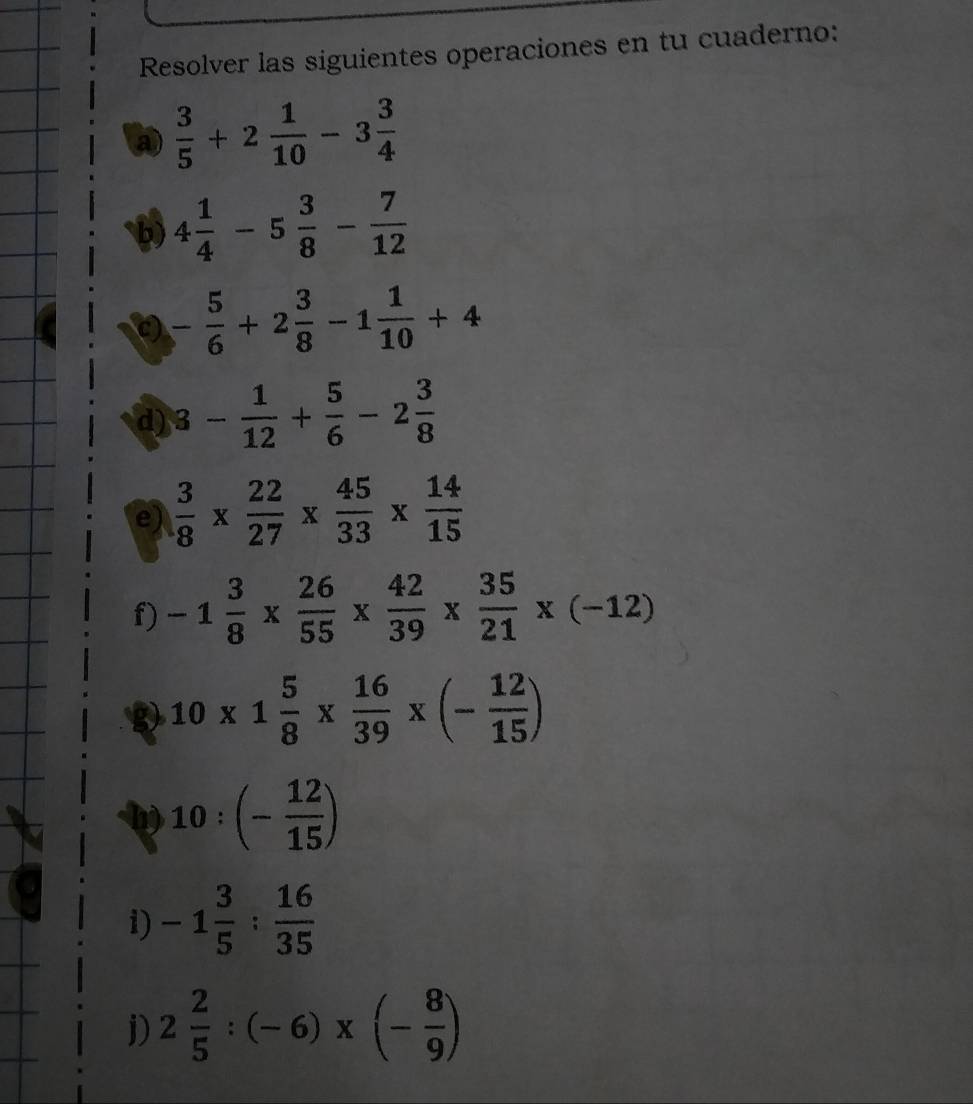 Resolver las siguientes operaciones en tu cuaderno:
a) 3/5 + 2 1/10 − 3 3/4
b) 4 1/4 − 5 3/8 − 7/12
c) − 5/6 + 2 3/8 − 1 1/10 + 4
d) 3 − 1/12 + 5/6 − 2 3/8
e) 3/8 x 22/27 x 45/33 x 14/15
f) − 1 3/8 x 26/55 x 42/39 x 35/21 x (−12)
g) 10 x 1 5/8 x 16/39 x (− 12/15)
h) 10 : (− 12/15)
i) − 1 3/5 : 16/35
j) 2 2/5 : (− 6) x (− 8/9)